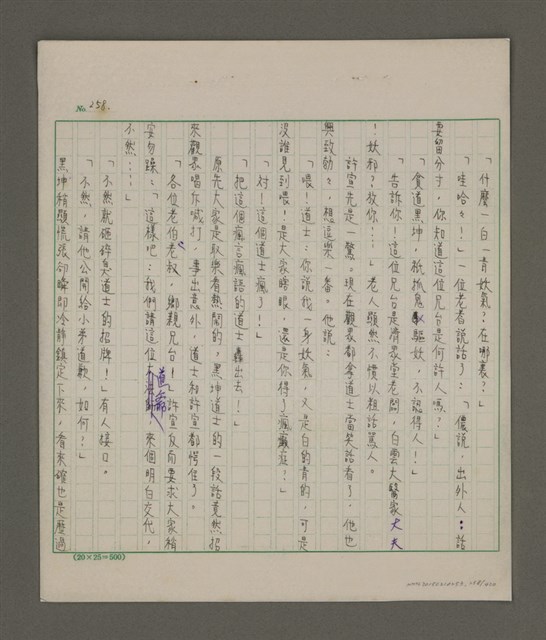 No. 258.
「什麼一白一青妖氣?在哪裏?」
「哇哈々!」一位老者說話了:「儂說,出外人:話
要留分寸,你知道這位兄台是何許人嗎?」
「貧道黑坤,祇抓鬼驅妖,不認得人!」
「告訴你!這位兄台是濟眾堂老闆,白雲大醫家夫夫
!妖邪?放你!…」老人顯然不慣以粗話罵人。
許宣先是一驚。現在觀眾都拿道士當笑話看了,他也
興致勃々,想逗樂一番。他說:
「喂!道士:你說我一身妖氣,又是白的青的,可是
沒誰見到喂!是大家瞎眼,還是你得了瘋癲症?」
「對!這個道士瘋了!」
「把這個瘋言瘋語的道士轟出去!」
原先大家是取樂看熱鬧的,黑坤道士的一段話竟然招
來觀眾唱乍喊打,事出意外,道士和許宣都愕住了。
「各位老伯老叔,鄉親兄台!」許宣反而要求大家稍
安勿躁:「這樣吧:我們請這位道爺,來個明白交代,
不然…」
「不然就砸碎臭道士的招牌!」有人接口。
「不然,請他公開給小弟道歉,如何?」
黑坤稍顯慌張卻瞬即冷靜鎮定下來,看來確也是歷過
(20×25=500)